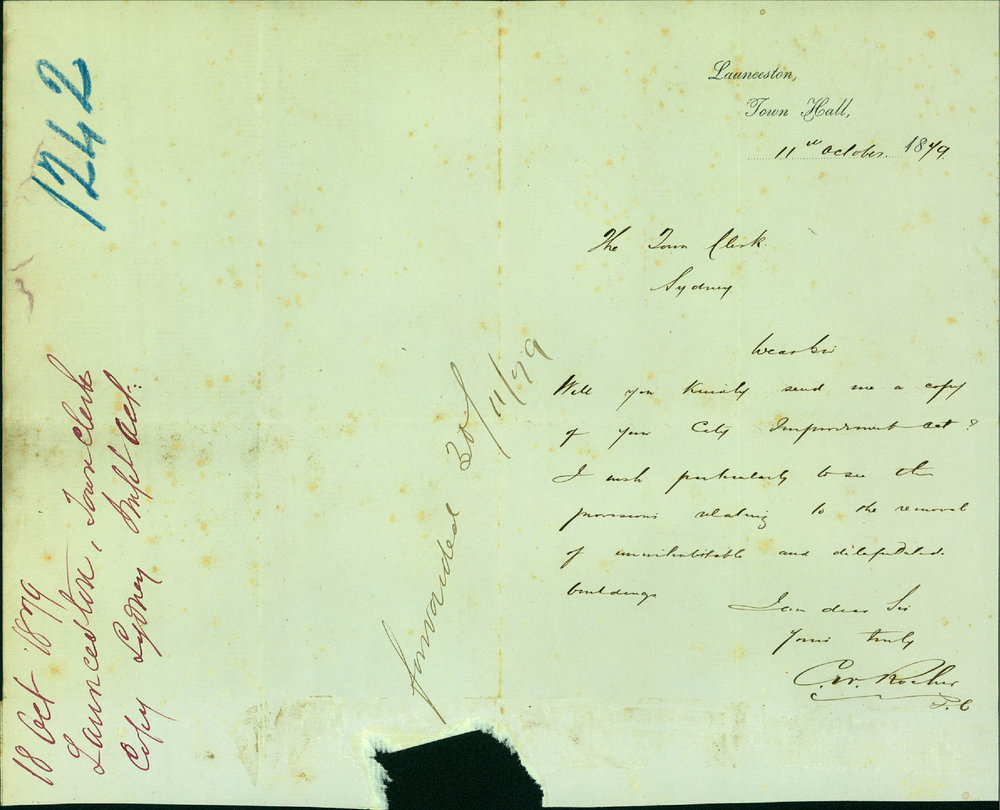 1242
18 Oct 1879
Launceston, Town Clerk
Copy Sydney Impt Act.
forwarded 30/11/79
Launceston,
Town Hall,
11th October 1879.
The Town Clerk
Sydney
Dear Sir
Will you kindly send me a copy
of your City Improvement Act?
I wish particularly to see the
provisions relating to the removal
of uninhabitable and dilapidated
buildings
I am dear Sir
Yours truly
C. W. Rocher
T. C